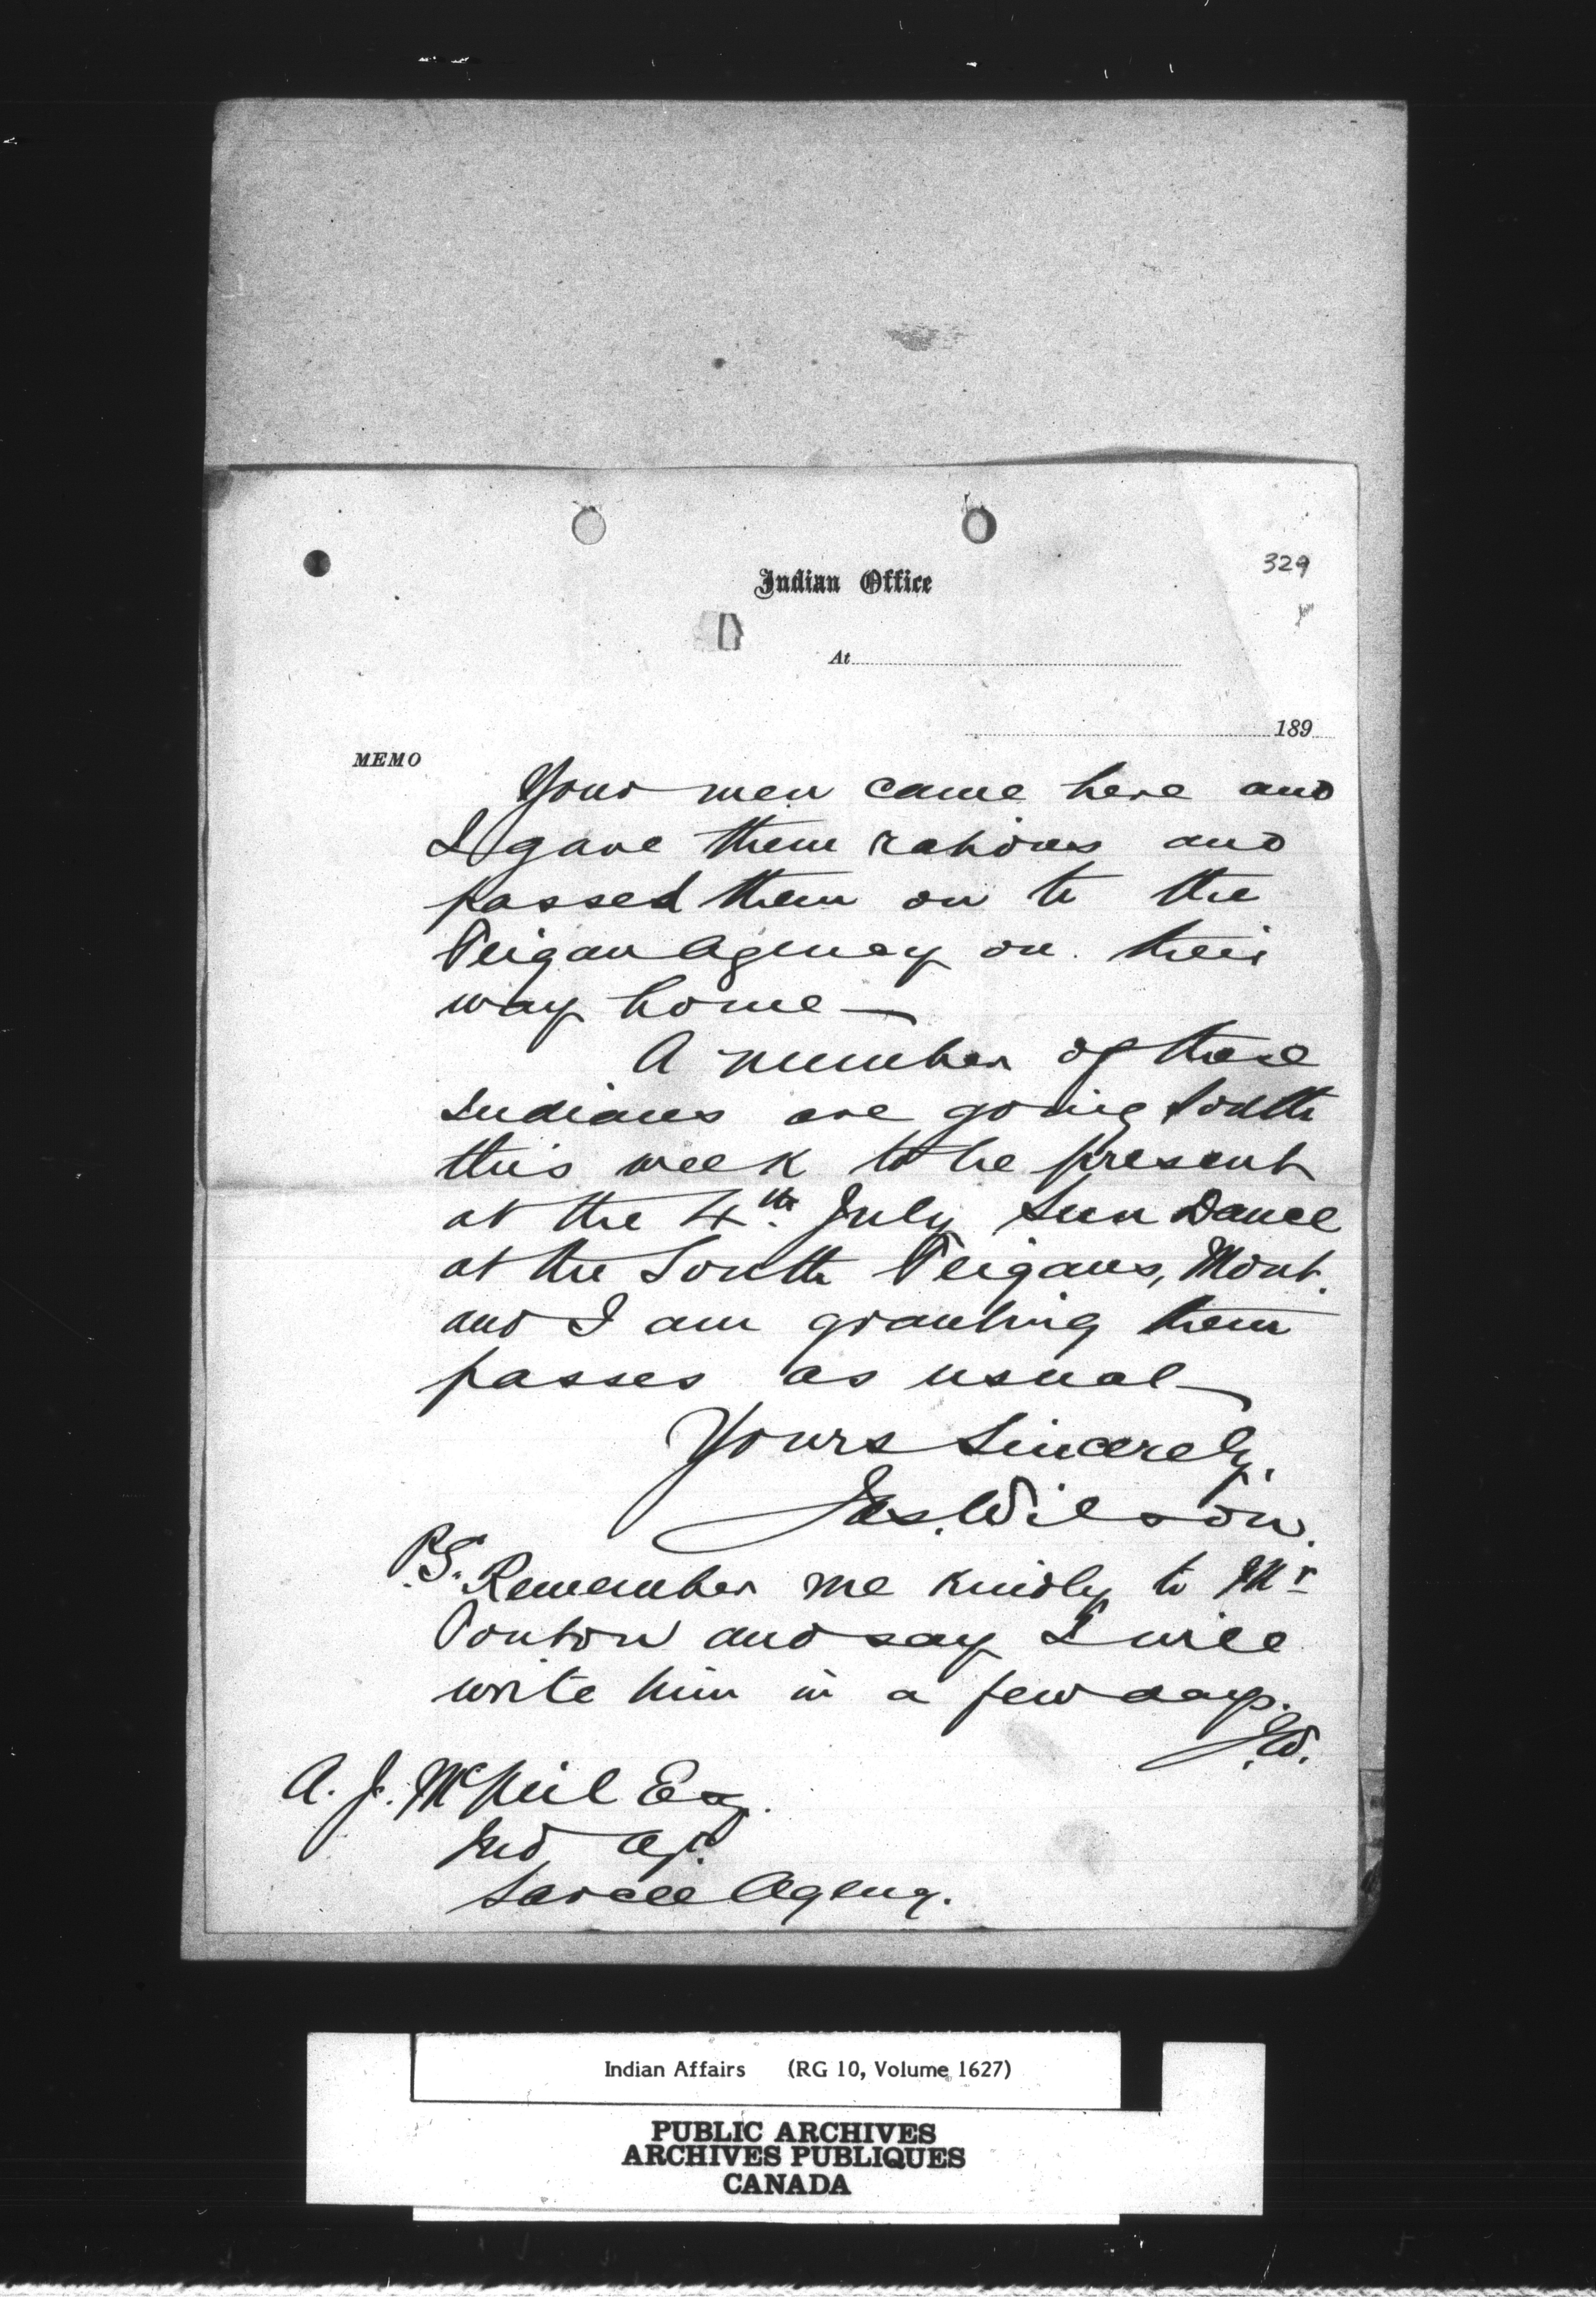 329
Indian Office
At
189
MEMO
Your men came here and
I gave them rations and
passed them on to the
Peigan Agency on their
way home —
A number of these
Indians are going South
this week to be present
at the 4th July Sun Dance
at the South Peigans, Mont.
and I am granting them
passes as usual —
Yours Sincerely,
Jas. Wilson.
P.S. Remember me kindly to Mr
Ponton and say I will
write him in a few days.
J.W.
A. J. McNeil Esq.
Ind Agt.
Sarcee Agency.
Indian Affairs (RG 10, Volume 1627)
PUBLIC ARCHIVES
ARCHIVES PUBLIQUES
CANADA